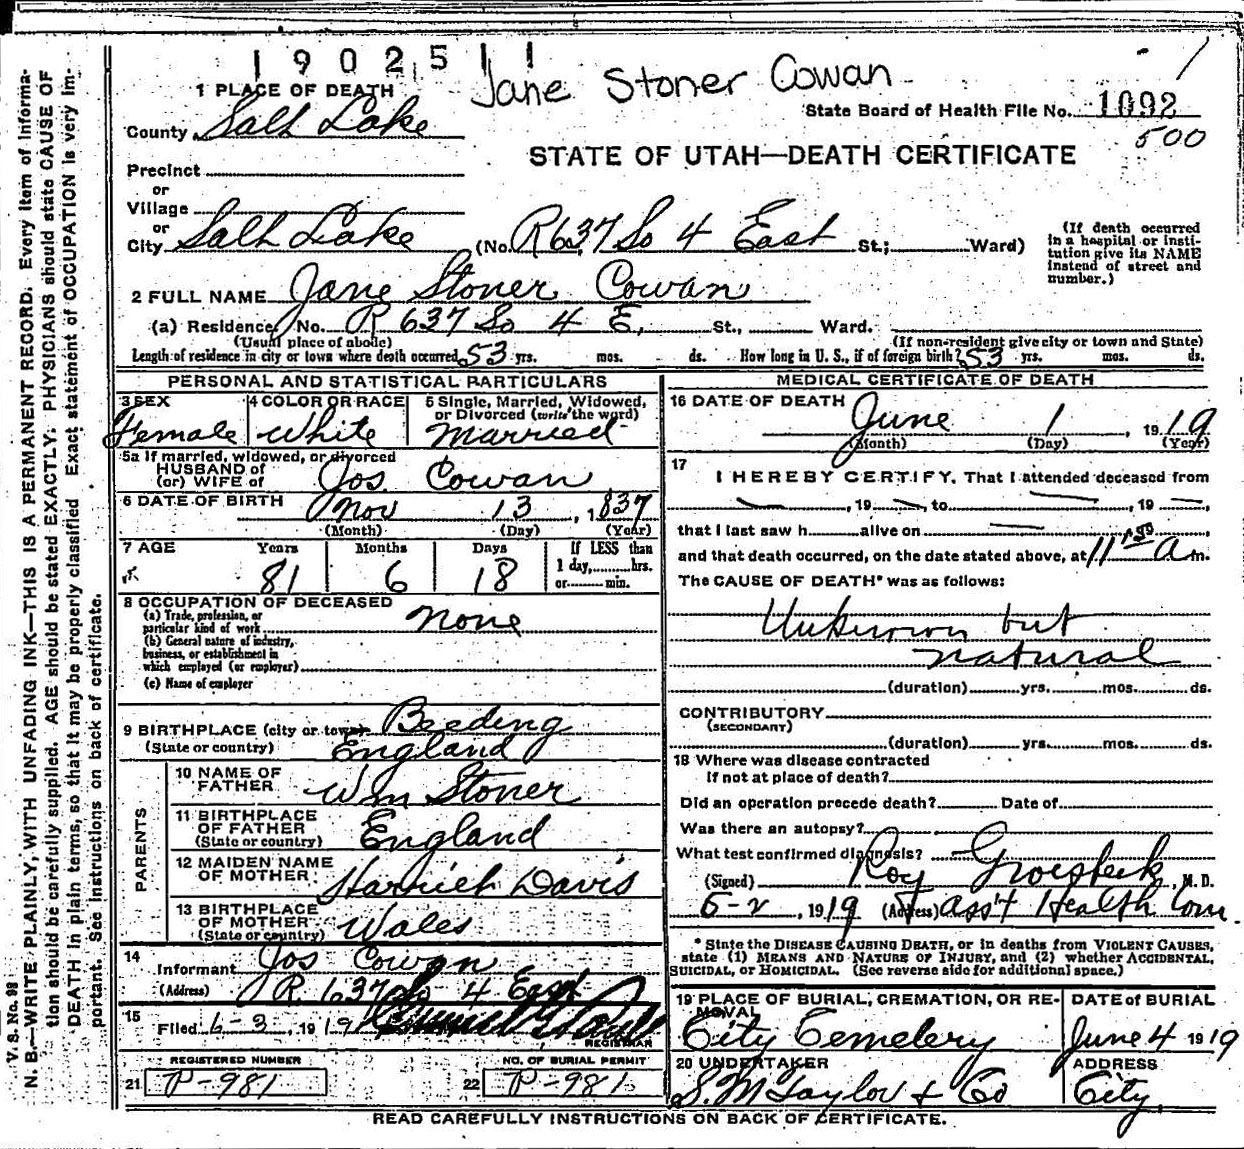 1902511
Jane Stoner Cowan
1 PLACE OF DEATH
State Board of Health File No. 1092
500
County Salt Lake
STATE OF UTAH—DEATH CERTIFICATE
Precinct
or
Village
or
City Salt Lake (No. R637 So 4 East St.; Ward)
(If death occurred in a hospital or institution give its NAME instead of street and number.)
2 FULL NAME Jane Stoner Cowan
(a) Residence, No. R 637 So 4 E, St., Ward.
(Usual place of abode) (If non-resident give city or town and State)
Length of residence in city or town where death occurred 53 yrs. mos. ds. How long in U. S., if of foreign birth? 53 yrs. mos. ds.
PERSONAL AND STATISTICAL PARTICULARS
3 SEX Female
4 COLOR OR RACE White
5 Single, Married, Widowed, or Divorced (write the word) Married
5a If married, widowed, or divorced
HUSBAND of
(or) WIFE of Jos Cowan
6 DATE OF BIRTH Nov 13, 1837
(Month) (Day) (Year)
7 AGE Years Months Days If LESS than
81 6 18 1 day, hrs.
or min.
8 OCCUPATION OF DECEASED
(a) Trade, profession, or particular kind of work None
(b) General nature of industry, business, or establishment in which employed (or employer)
(c) Name of employer
9 BIRTHPLACE (city or town) Beeding
(State or country) England
PARENTS
10 NAME OF FATHER Wm Stoner
11 BIRTHPLACE OF FATHER (State or country) England
12 MAIDEN NAME OF MOTHER Harrieh Davis
13 BIRTHPLACE OF MOTHER (State or country) Wales
14 Informant Jos Cowan
(Address) R 637 So 4 East
15 Filed 6-3, 1919
REGISTRAR
REGISTERED NUMBER NO. OF BURIAL PERMIT
21 P-981 22 P-981
MEDICAL CERTIFICATE OF DEATH
16 DATE OF DEATH June 1, 1919
(Month) (Day) (Year)
17 I HEREBY CERTIFY, That I attended deceased from
, 19 to , 19 ,
that I last saw h alive on ,
and that death occurred, on the date stated above, at 11 30 a m.
The CAUSE OF DEATH* was as follows:
Unknown but
natural
(duration) yrs. mos. ds.
CONTRIBUTORY
(SECONDARY)
(duration) yrs. mos. ds.
18 Where was disease contracted
if not at place of death?
Did an operation precede death? Date of
Was there an autopsy?
What test confirmed diagnosis?
(Signed) Roy Groesbeck, M. D.
6-2, 1919 (Address) Ass't Health Com.
* State the DISEASE CAUSING DEATH, or in deaths from VIOLENT CAUSES,
state (1) MEANS AND NATURE OF INJURY, and (2) whether ACCIDENTAL,
SUICIDAL, or HOMICIDAL. (See reverse side for additional space.)
19 PLACE OF BURIAL, CREMATION, OR REMOVAL City Cemetery
DATE of BURIAL June 4 1919
20 UNDERTAKER S. M Taylor & Co
ADDRESS City
READ CAREFULLY INSTRUCTIONS ON BACK OF CERTIFICATE.
V. S. No. 98
N. B.—WRITE PLAINLY, WITH UNFADING INK—THIS IS A PERMANENT RECORD. Every item of information should be carefully supplied. AGE should be stated EXACTLY. PHYSICIANS should state CAUSE OF DEATH in plain terms, so that it may be properly classified Exact statement of OCCUPATION is very important. See instructions on back of certificate.